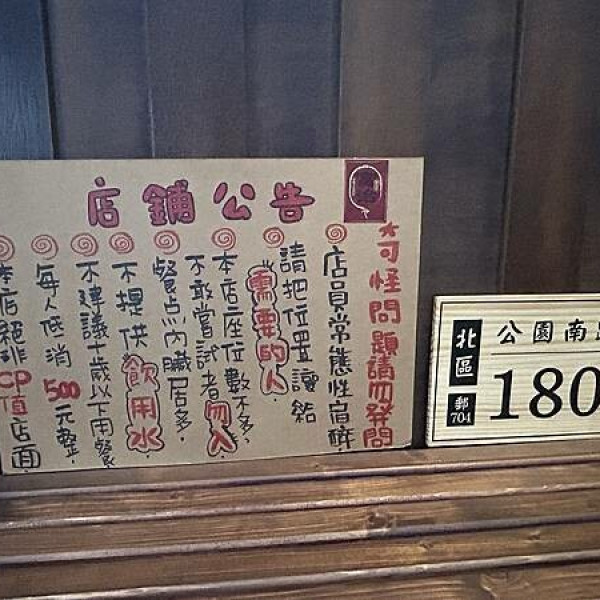 店鋪公告
★可怪問題請勿發問
店員常態性宿醉.
請把位置讓給
需要的人.
本店座位數不多、
不敢嘗試者勿入
餐點內臟居多,
不提供飲用水.
不建議十歲以下用餐
每人低消500元整.
本店絕非CP值店面
北區
郵704
公園南
180